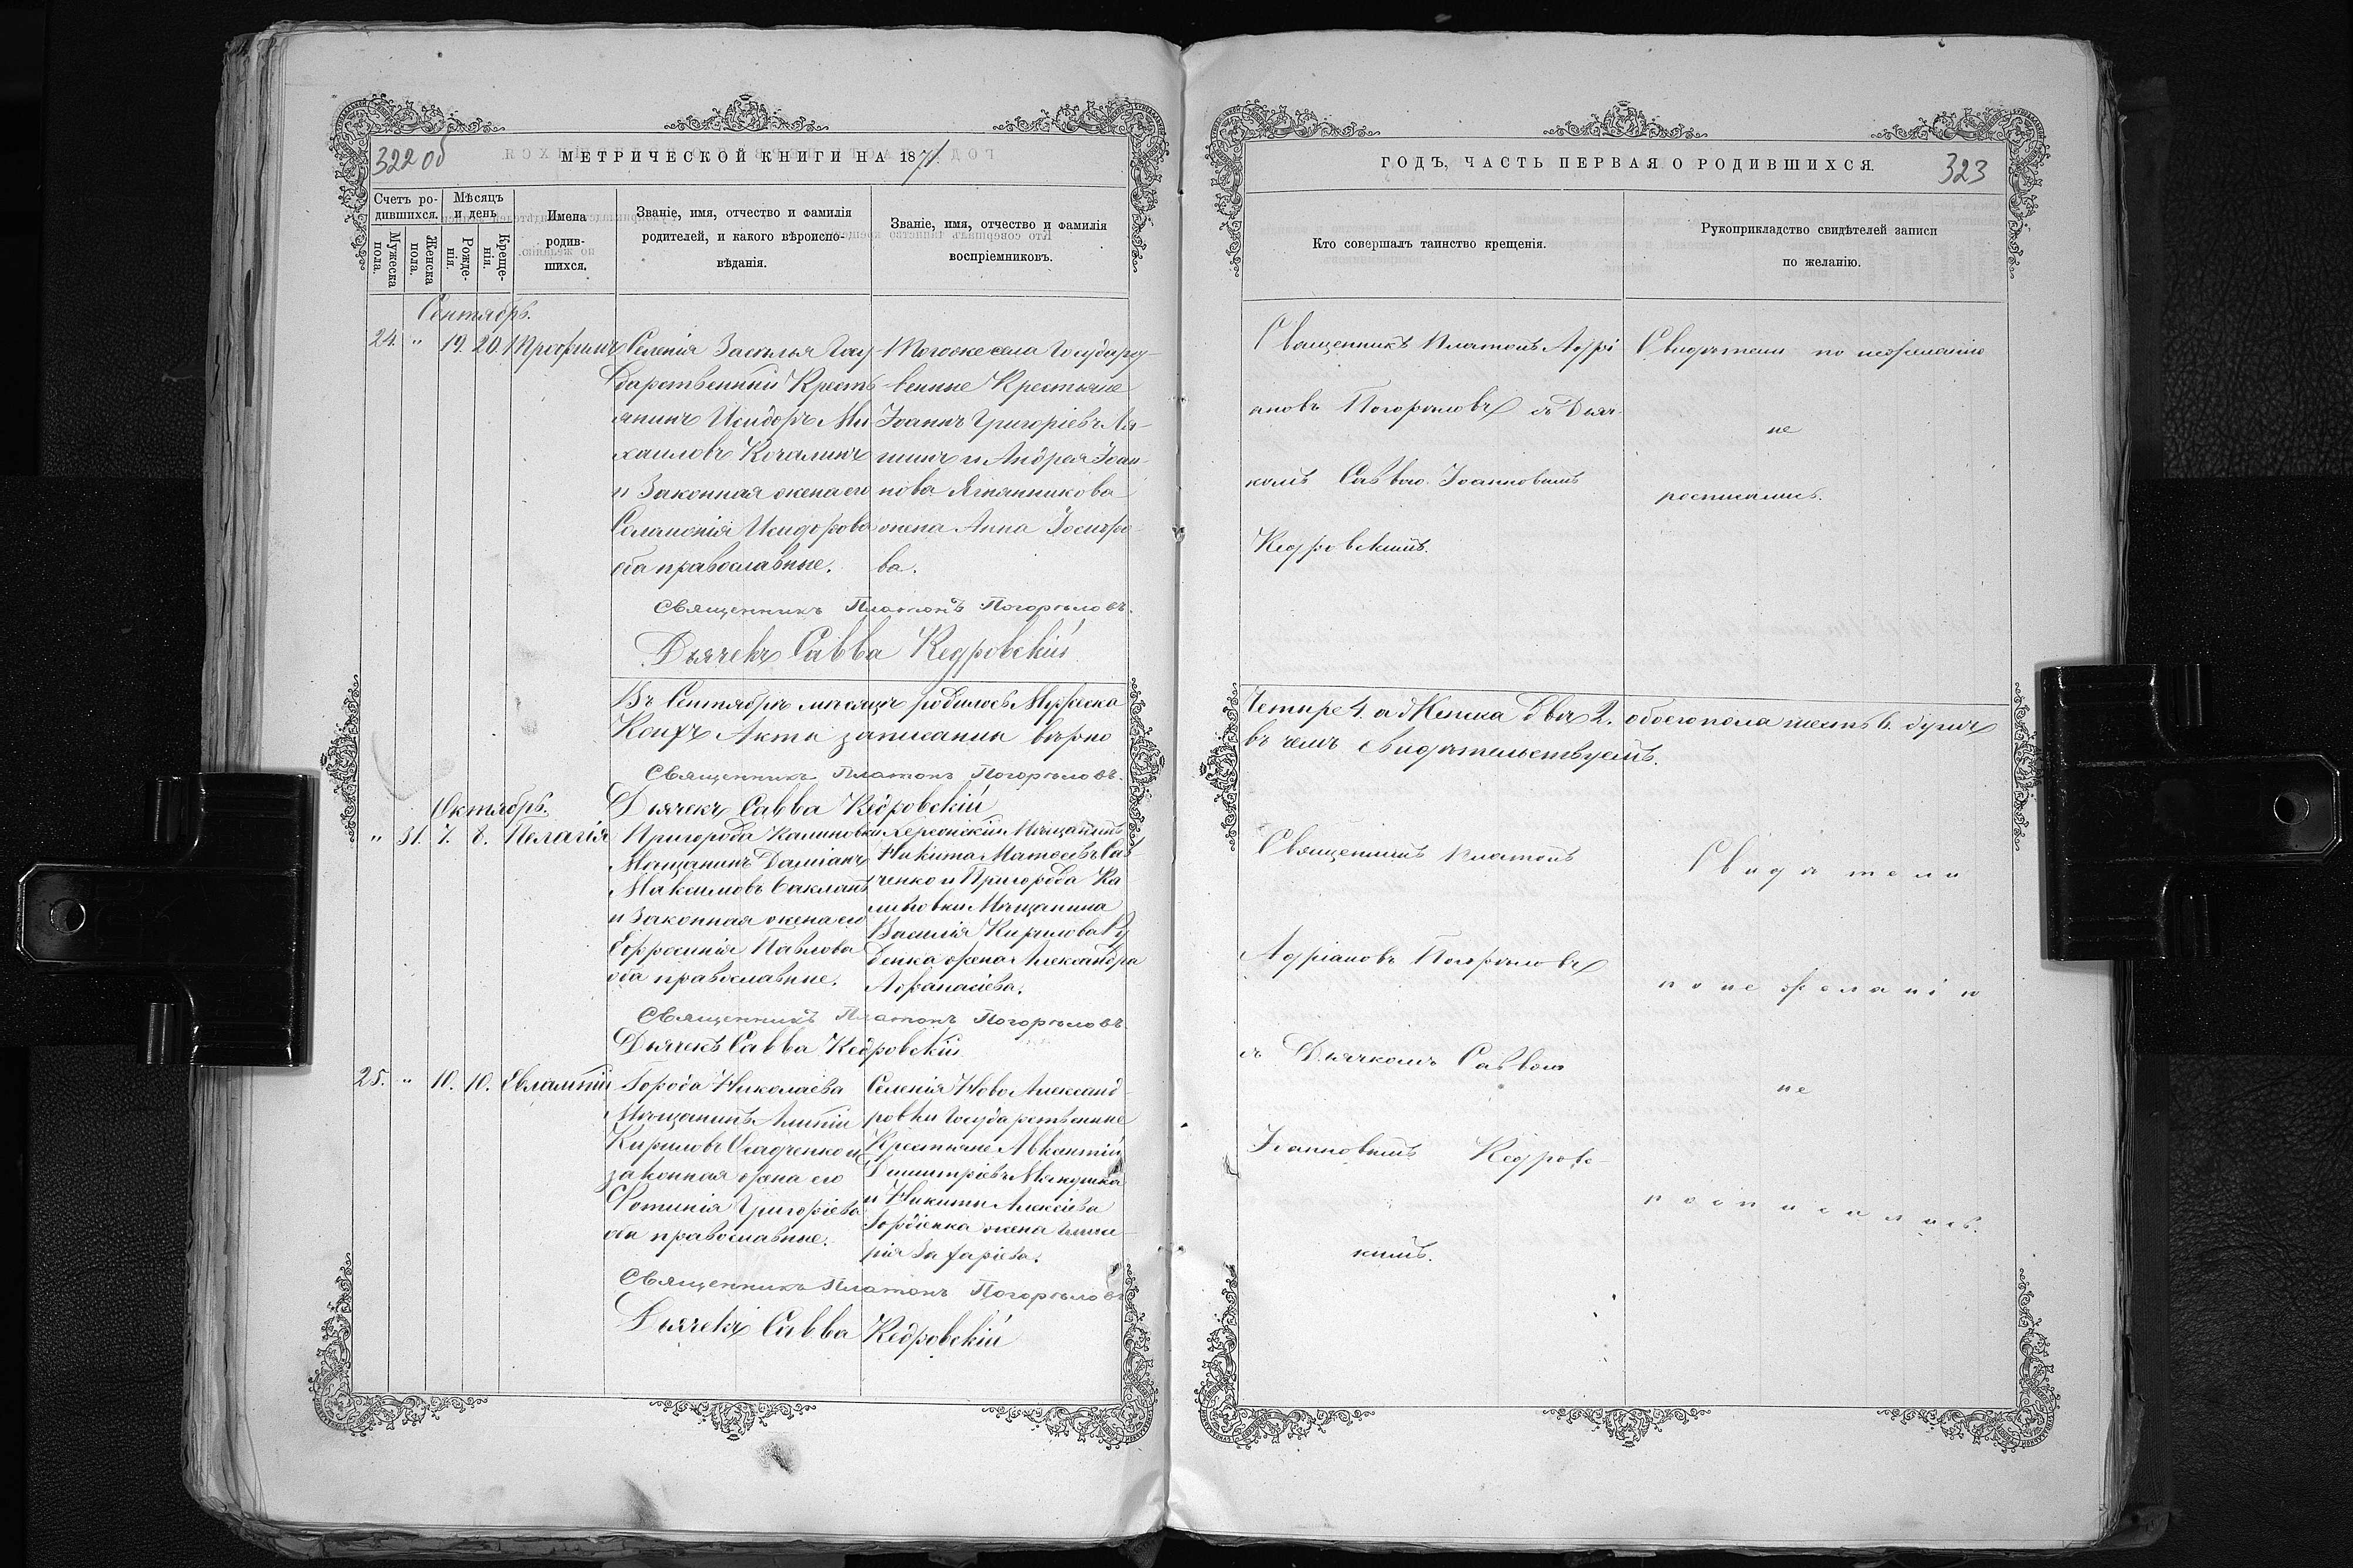 322 об
МЕТРИЧЕСКОЙ КНИГИ НА 1871
Счетъ ро-
дившихся.
Мѣсяцъ
и день
Мужеска
пола.
Женска
пола.
Рожде-
нія.
Креще-
нія.
Имена
родив-
шихся.
Званіе, имя, отчество и фамилія
родителей, и какого вѣроиспо-
вѣданія.
Званіе, имя, отчество и фамилія
воспріемниковъ.
Сентябрь.
24. " 19. 20. Трофимъ
Селенія Засилья Госу
дарственный Кресть
янинъ Исидоръ Ми
хаиловъ Качалинъ
и Законная жена его
Исидорова
оба православные.
Тогоже села Государс-
твенные Крестьяне
Іоаннъ Григоріевъ Ля-
шинъ и Андрея Іоан-
нова Ягнянникова
жена Анна Іосифо-
ва.
Священникъ Платонъ Погорѣловъ.
Дьячекъ Савва Кедровскій
Въ Сентябрѣ мѣсяцѣ родилось Мужеска
Коихъ Акты записаны вѣрно
Священникъ Платонъ Погорѣловъ.
Дьячекъ Савва Кедровскій
Октябрь.
" 31. 7. 8. Пелагія
Пригорода Калиновки
Мѣщанинъ Даміанъ
Максимовъ Бакланъ
и Законная жена его
Евфросинія Павлова
оба православные.
Херсонскій Мѣщанинъ
Никита Матѳеевъ Сав
ченко и Пригорода Ка
линовки Мѣщанина
Василія Кирилова Ру
денка жена Александра
Афанасіева.
Священникъ Платонъ Погорѣловъ.
Дьячекъ Савва Кедровскій
25. " 10. 10. Евлампій
Города Николаева
Мѣщанинъ Алипій
Кириловъ Осадченко и
законная жена его
Фотинія Григоріева
оба православные.
Селенія Ново Александ-
ровки Государственные
Крестьяне Авксентій
Димитріевъ Мякушка
и Никиты Алексіева
Гордіенка жена Глике-
рія Захаріева.
Священникъ Платонъ Погорѣловъ
Дьячекъ Савва Кедровскій
ГОДЪ, ЧАСТЬ ПЕРВАЯ О РОДИВШИХСЯ.
323
Кто совершалъ таинство крещенія.
Рукоприкладство свидѣтелей записи
по желанію.
Священникъ Платонъ Адрі
ановъ Погорѣловъ съ Дьяч-
комъ Саввою Іоанновымъ
Кедровскимъ.
Свидѣтели по нежеланію
не
росписались.
Четыре 4. а Женска двѣ 2. обоего пола шесть 6. душъ
въ чемъ свидѣтельствуемъ.
Священникъ Платонъ
Адріановъ Погорѣловъ
съ Дьячкомъ Саввою
Іоанновымъ Кедровс-
кимъ.
Свидѣтели
по нежеланію
не
росписались.